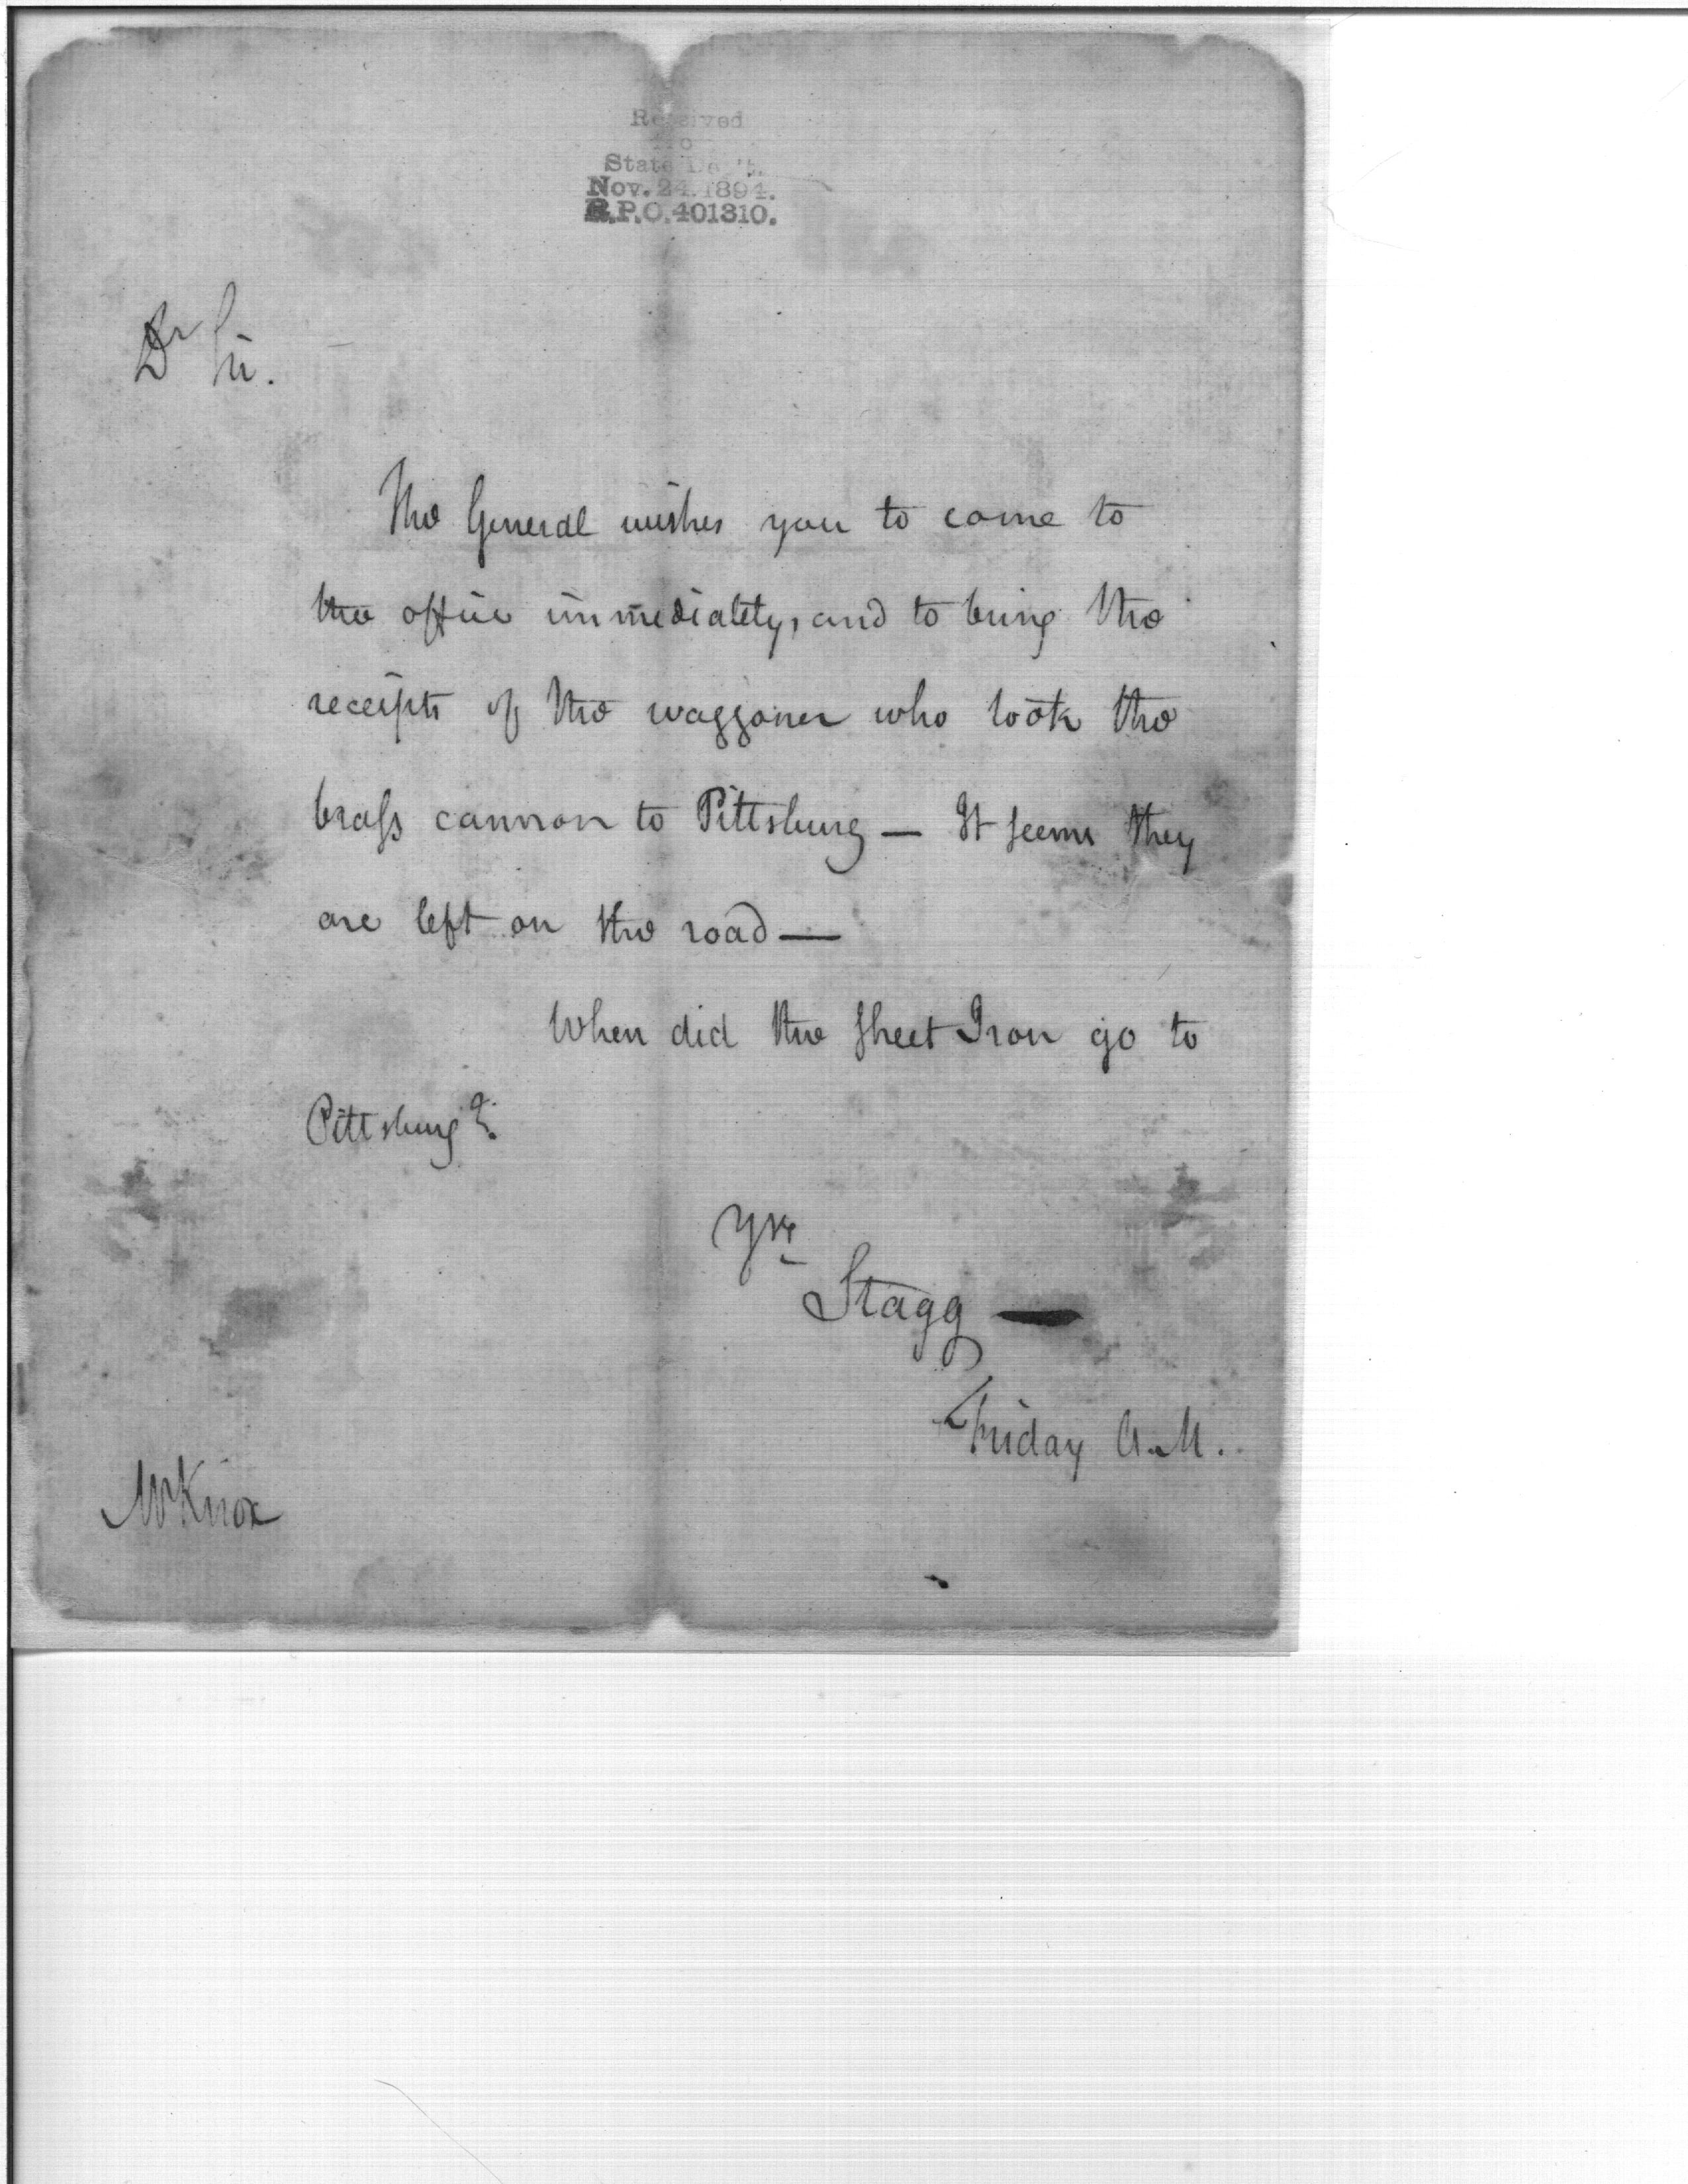 Received
State Dep't.
Nov. 24. 1894.
R.P.O. 401310.
Dr Sir.
The General wishes you to come to
the office immediately, and to bring the
receipts of the waggoner who took the
brass cannon to Pittsburg — It seems they
are left on the road —
When did the sheet Iron go to
Pittsburg?
Yrs
Stagg —
Friday A.M.
Mr Knox